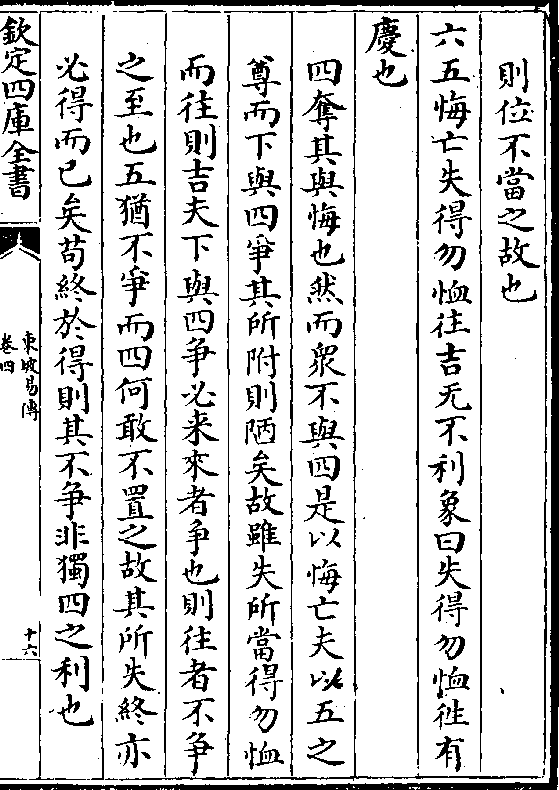 則位不當之故也
六五悔亡失得勿恤往吉无不利象曰失得勿恤徃有
慶也
四奪其與悔也然而衆不與四是以悔亡夫以五之
尊而下與四爭其所附則陋矣故雖失所當得勿恤
而往則吉夫下與四争必来來者争也則往者不争
之至也五猶不爭而四何敢不置之故其所失終亦
必得而已矣苟終於得則其不争非獨四之利也
欽定四庫全書
東坡易傳
卷四
十六